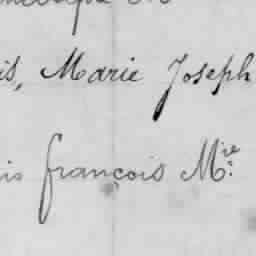 is, Marie Joseph
is françois M.re